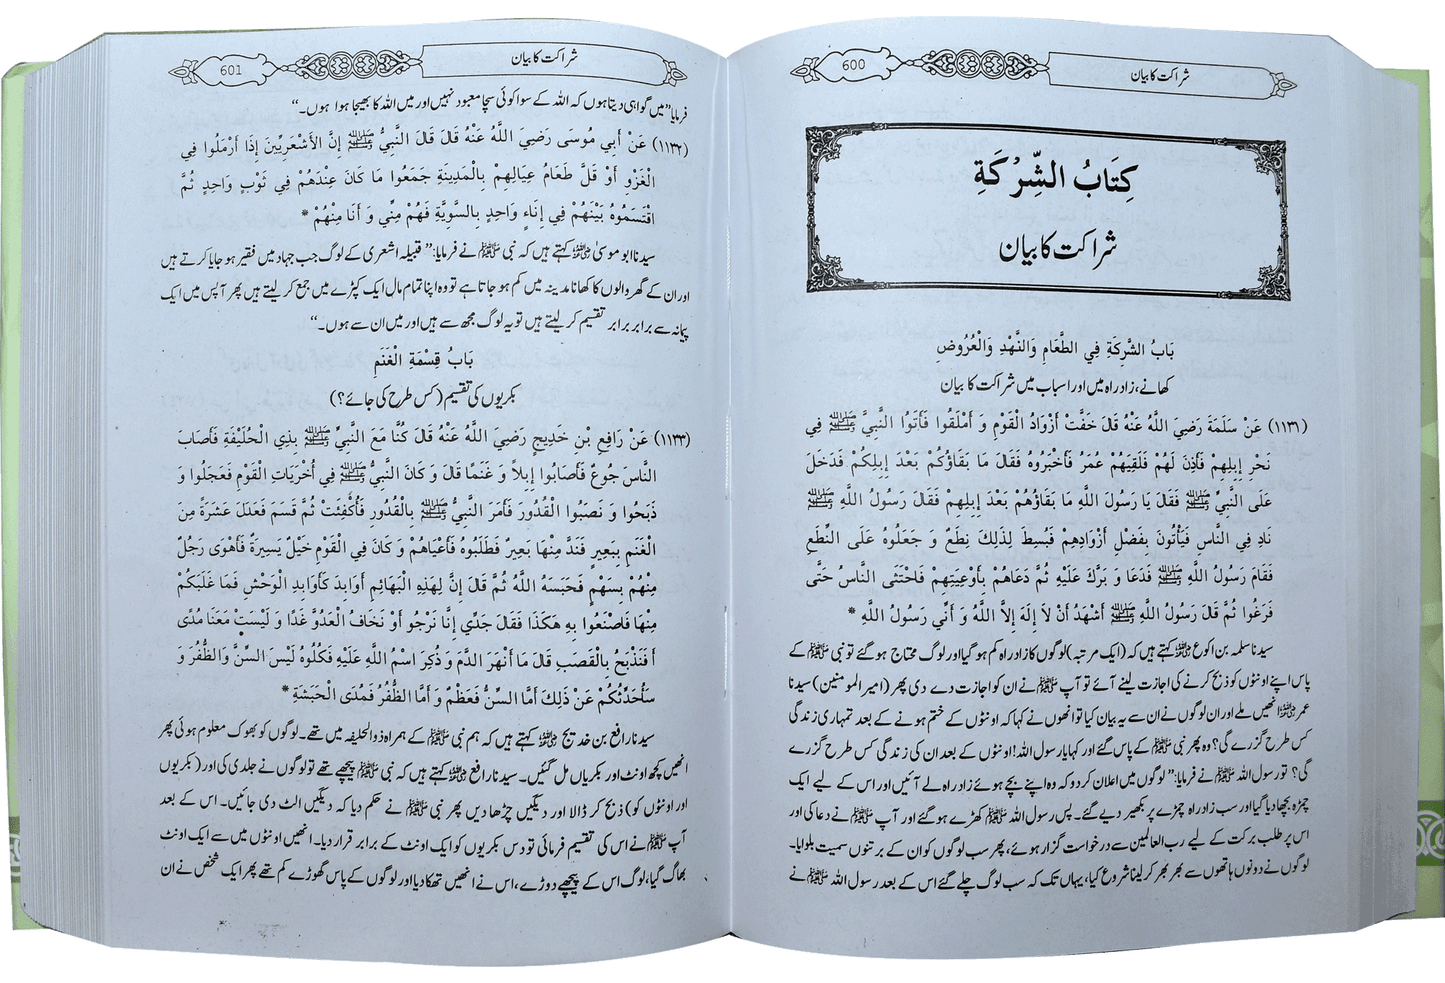 شراکت کا بیان
600
كِتَابُ الشِّرْكَةِ
شراکت کا بیان
بَابُ الشَّرِكَةِ فِي الطَّعَامِ وَالنَّهْدِ وَالْعُرُوضِ
کھانے، زادراہ میں اور اسباب میں شراکت کا بیان
(۱۱۳۱) عَنْ سَلَمَةَ رَضِيَ اللَّهُ عَنْهُ قَالَ خَفَّتْ أَزْوَادُ الْقَوْمِ وَ أَمْلَقُوا فَأَتَوُا النَّبِيَّ ﷺ فِي
نَحْرِ إِبِلِهِمْ فَأَذِنَ لَهُمْ فَلَقِيَهُمْ عُمَرُ فَأَخْبَرُوهُ فَقَالَ مَا بَقَاؤُكُمْ بَعْدَ إِبِلِكُمْ فَدَخَلَ
عَلَى النَّبِيِّ ﷺ فَقَالَ يَا رَسُولَ اللَّهِ مَا بَقَاؤُهُمْ بَعْدَ إِبِلِهِمْ فَقَالَ رَسُولُ اللَّهِ ﷺ
نَادِ فِي النَّاسِ فَيَأْتُونَ بِفَضْلِ أَزْوَادِهِمْ فَبُسِطَ لِذَلِكَ نِطَعٌ وَ جَعَلُوهُ عَلَى النِّطَعِ
فَقَامَ رَسُولُ اللَّهِ ﷺ فَدَعَا وَ بَرَّكَ عَلَيْهِ ثُمَّ دَعَاهُمْ بِأَوْعِيَتِهِمْ فَاحْتَثَى النَّاسُ حَتَّى
فَرَغُوا ثُمَّ قَالَ رَسُولُ اللَّهِ ﷺ أَشْهَدُ أَنْ لَا إِلَهَ إِلَّا اللَّهُ وَ أَنِّي رَسُولُ اللَّهِ *
سیدنا سلمہ بن اکوع ؓ کہتے ہیں کہ (ایک مرتبہ) لوگوں کا زادراہ کم ہو گیا اور لوگ محتاج ہو گئے تو نبی ﷺ کے
پاس اپنے اونٹوں کو ذبح کرنے کی اجازت لینے آئے تو آپ ﷺ نے ان کو اجازت دے دی پھر (امیر المومنین) سیدنا
عمر ؓ انھیں ملے اور ان لوگوں نے ان سے یہ بیان کیا تو انھوں نے کہا کہ اونٹوں کے ختم ہونے کے بعد تمہاری زندگی
کس طرح گزرے گی؟ وہ پھر نبی ﷺ کے پاس گئے اور کہا یا رسول اللہ! اونٹوں کے بعد ان کی زندگی کس طرح گزرے
گی؟ تو رسول اللہ ﷺ نے فرمایا: ”لوگوں میں اعلان کر دو کہ وہ اپنے بچے ہوئے زادراہ لے آئیں اور اس کے لیے ایک
چمڑہ بچھا دیا گیا اور سب زادراہ چمڑے پر بکھیر دیے گئے۔ پس رسول اللہ ﷺ کھڑے ہو گئے اور آپ ﷺ نے دعا کی اور
اس پر طلب برکت کے لیے رب العالمین سے درخواست گزار ہوئے، پھر سب لوگوں کو ان کے برتنوں سمیت بلوایا۔
لوگوں نے دونوں ہاتھوں سے بھر بھر کر لینا شروع کیا، یہاں تک کہ سب لوگ چلے گئے اس کے بعد رسول اللہ ﷺ نے
شراکت کا بیان
601
فرمایا ”میں گواہی دیتا ہوں کہ اللہ کے سوا کوئی سچا معبود نہیں اور میں اللہ کا بھیجا ہوا ہوں۔“
(۱۱۳۲) عَنْ أَبِي مُوسَى رَضِيَ اللَّهُ عَنْهُ قَالَ قَالَ النَّبِيُّ ﷺ إِنَّ الأَشْعَرِيِّينَ إِذَا أَرْمَلُوا فِي
الْغَزْوِ أَوْ قَلَّ طَعَامُ عِيَالِهِمْ بِالْمَدِينَةِ جَمَعُوا مَا كَانَ عِنْدَهُمْ فِي ثَوْبٍ وَاحِدٍ ثُمَّ
اقْتَسَمُوهُ بَيْنَهُمْ فِي إِنَاءٍ وَاحِدٍ بِالسَّوِيَّةِ فَهُمْ مِنِّي وَ أَنَا مِنْهُمْ *
سیدنا ابو موسیٰ ؓ کہتے ہیں کہ نبی ﷺ نے فرمایا: ”قبیلہ اشعری کے لوگ جب جہاد میں فقیر ہو جایا کرتے ہیں
اور ان کے گھر والوں کا کھانا مدینہ میں کم ہو جاتا ہے تو وہ اپنا تمام مال ایک کپڑے میں جمع کر لیتے ہیں پھر آپس میں ایک
پیمانہ سے برابر برابر تقسیم کر لیتے ہیں تو یہ لوگ مجھ سے ہیں اور میں ان سے ہوں۔“
بَابُ قِسْمَةِ الْغَنَمِ
بکریوں کی تقسیم (کس طرح کی جائے؟)
(۱۱۳۳) عَنْ رَافِعِ بْنِ خَدِيجٍ رَضِيَ اللَّهُ عَنْهُ قَالَ كُنَّا مَعَ النَّبِيِّ ﷺ بِذِي الْحُلَيْفَةِ فَأَصَابَ
النَّاسَ جُوعٌ فَأَصَابُوا إِبِلاً وَ غَنَمًا قَالَ وَ كَانَ النَّبِيُّ ﷺ فِي أُخْرَيَاتِ الْقَوْمِ فَعَجِلُوا وَ
ذَبَحُوا وَ نَصَبُوا الْقُدُورَ فَأَمَرَ النَّبِيُّ ﷺ بِالْقُدُورِ فَأُكْفِئَتْ ثُمَّ قَسَمَ فَعَدَلَ عَشَرَةً مِنَ
الْغَنَمِ بِبَعِيرٍ فَنَدَّ مِنْهَا بَعِيرٌ فَطَلَبُوهُ فَأَعْيَاهُمْ وَ كَانَ فِي الْقَوْمِ خَيْلٌ يَسِيرَةٌ فَأَهْوَى رَجُلٌ
مِنْهُمْ بِسَهْمٍ فَحَبَسَهُ اللَّهُ ثُمَّ قَالَ إِنَّ لِهَذِهِ الْبَهَائِمِ أَوَابِدَ كَأَوَابِدِ الْوَحْشِ فَمَا غَلَبَكُمْ
مِنْهَا فَاصْنَعُوا بِهِ هَكَذَا فَقَالَ جَدِّي إِنَّا نَرْجُو أَوْ نَخَافُ الْعَدُوَّ غَدًا وَ لَيْسَتْ مَعَنَا مُدًى
أَ فَنَذْبَحُ بِالْقَصَبِ قَالَ مَا أَنْهَرَ الدَّمَ وَ ذُكِرَ اسْمُ اللَّهِ عَلَيْهِ فَكُلُوهُ لَيْسَ السِّنَّ وَالظُّفُرَ وَ
سَأُحَدِّثُكُمْ عَنْ ذَلِكَ أَمَّا السِّنُّ فَعَظْمٌ وَ أَمَّا الظُّفُرُ فَمُدَى الْحَبَشَةِ *
سیدنا رافع بن خدیج ؓ کہتے ہیں کہ ہم نبی ﷺ کے ہمراہ ذوالحلیفہ میں تھے۔ لوگوں کو بھوک معلوم ہوئی پھر
انھیں کچھ اونٹ اور بکریاں مل گئیں۔ سیدنا رافع ؓ کہتے ہیں کہ نبی ﷺ پیچھے تھے تو لوگوں نے جلدی کی اور (بکریوں
اور اونٹوں کو) ذبح کر ڈالا اور دیگیں چڑھا دیں پھر نبی ﷺ نے حکم دیا کہ دیگیں الٹ دی جائیں۔ اس کے بعد
آپ ﷺ نے اس کی تقسیم فرمائی تو دس بکریوں کو ایک اونٹ کے برابر قرار دیا۔ انھیں اونٹوں میں سے ایک اونٹ
بھاگ گیا، لوگ اس کے پیچھے دوڑے، اس نے انھیں تھکا دیا اور لوگوں کے پاس گھوڑے کم تھے پھر ایک شخص نے ان